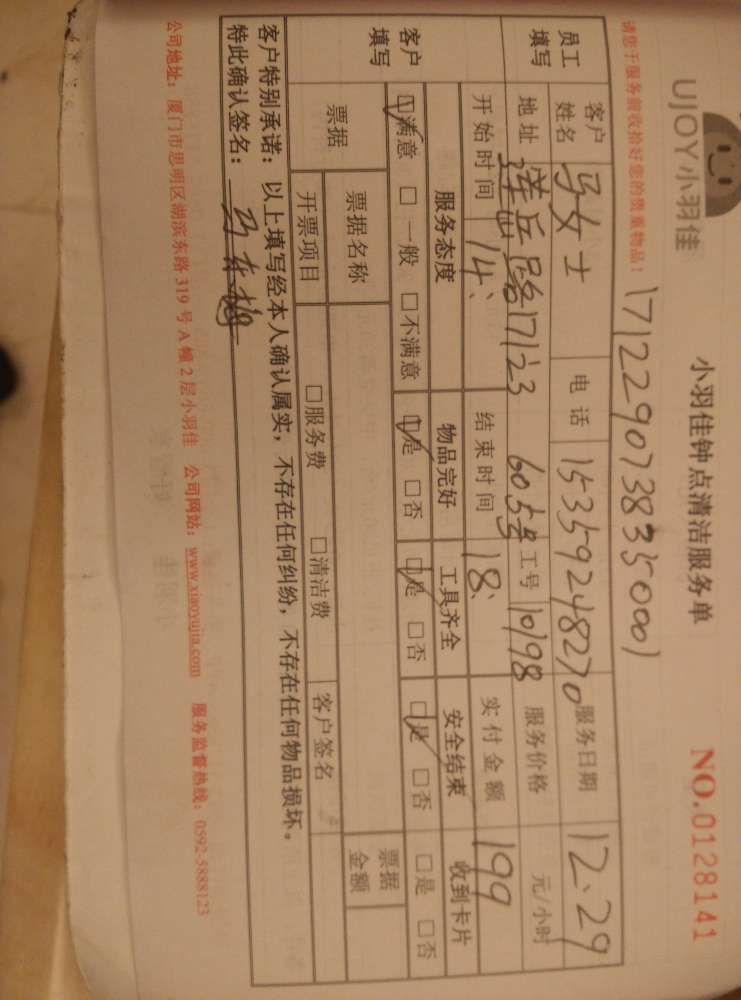 UJOY小羽佳
小羽佳钟点清洁服务单
NO.0128141
请您于服务前收拾好您的贵重物品！
1712290738350001
员工填写
客户姓名 马女士 电话 15359248270 服务日期 12、29
地址 莲岳路17123 605号 工号 10198 服务价格 元/小时
开始时间 14、 结束时间 18、 实付金额 199
客户填写
服务态度 物品完好 工具齐全 安全结束 收到卡片
☑满意 □一般 □不满意 ☑是 □否 ☑是 □否 ☑是 □否 □是 □否
票据 票据名称 票据金额
开票项目 □服务费 □清洁费 客户签名
客户特别承诺：以上填写经本人确认属实，不存在任何纠纷，不存在任何物品损坏。
特此确认签名：
公司地址：厦门市思明区湖滨东路319号A幢2层小羽佳 公司网站：www.xiaoyujia.com 服务监督热线：0592-5888123